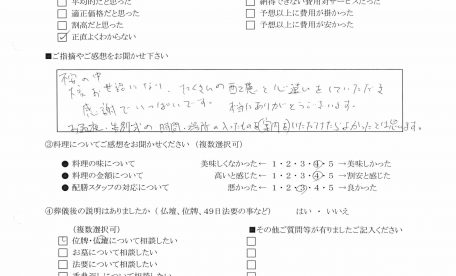 □ 平均的だと思った　□ 納得できない費用対サービスだった
□ 適正価格だと思った　□ 予想以上に費用が掛かった
□ 割高だと思った　□ 予想以上に費用が安かった
☑ 正直よくわからない
■ご指摘やご感想をお聞かせ下さい
お世話になり、たくさんの配慮と心遣いをしていただき
感謝でいっぱいです。 ありがとうございます。
お通夜、告別式の時間・場所の入ったもの(案内)をいただけたらよかったと思います。
③料理についてご感想をお聞かせください（複数選択可）
● 料理の味について　美味しくなかった← 1・2・3・4・5 →美味しかった
● 料理の金額について　高いと感じた← 1・2・3・4・5 →割安と感じた
● 配膳スタッフの対応について　悪かった← 1・2・3・4・5 →良かった
④葬儀後の説明はありましたか（仏壇、位牌、49日法要の事など）　はい ・ いいえ
（複数選択可）　■その他ご質問等が有りましたらご記入ください
□ 位牌・仏壇について相談したい
□ お墓について相談したい
□ 法要について相談したい